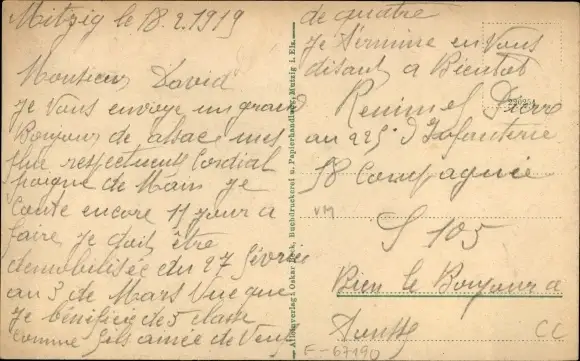 Mitzig le 18.2.1919
Monsieur David
Je Vous envoye un grand
Bonjour de alsace mes
plue respectueus Cordial
poigne de Main Je
Conte encore 17 jour a
faire Je doit être
demobilisée du 27 févrie
au 3 de Mars Vue que
Je bénificie de 5 classe
comme fils ainée de Veuf
de quatre
Je termine en Vous
disant a Bientot
Pierre
au 225e d'Infanterie
58 Compagnie
S 105
Bien le Bonjour a
VM
F-67190
CC
Buchdruckerei u. Papierhandlung, Mutzig i. Els.